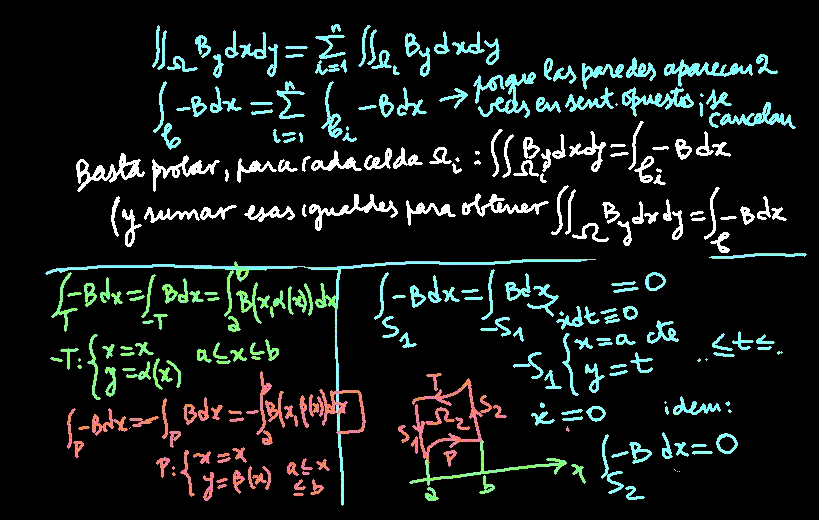 ∬_Ω B_y dxdy = Σ_{i=1}^{n} ∬_{Ω_i} B_y dxdy
∫_𝒞 -Bdx = Σ_{i=1}^{n} ∫_{𝒞_i} -Bdx → porque las paredes aparecen 2
veces en sent. opuestos; se
cancelan
Basta probar, para cada celda Ω_i : ∬_{Ω_i} B_y dxdy = ∫_{𝒞_i} -Bdx
(y sumar esas igualdes para obtener ∬_Ω B_y dxdy = ∫_𝒞 -Bdx
∫_T -Bdx = ∫_{-T} Bdx = ∫_a^b B(x,α(x))dx
-T: { x=x
y=α(x) a≤x≤b
∫_P -Bdx = -∫_P Bdx = -∫_a^b B(x,β(x))dx
P: { x=x
y=β(x) a≤x
≤b
∫_{S_1} -Bdx = ∫_{-S_1} Bdx = 0
ẋdt=0
-S_1 { x=a cte
y=t ..≤t≤..
ẋ=0 idem:
∫_{S_2} -B dx=0
T
S_1 Ω_2 S_2
P
a b x